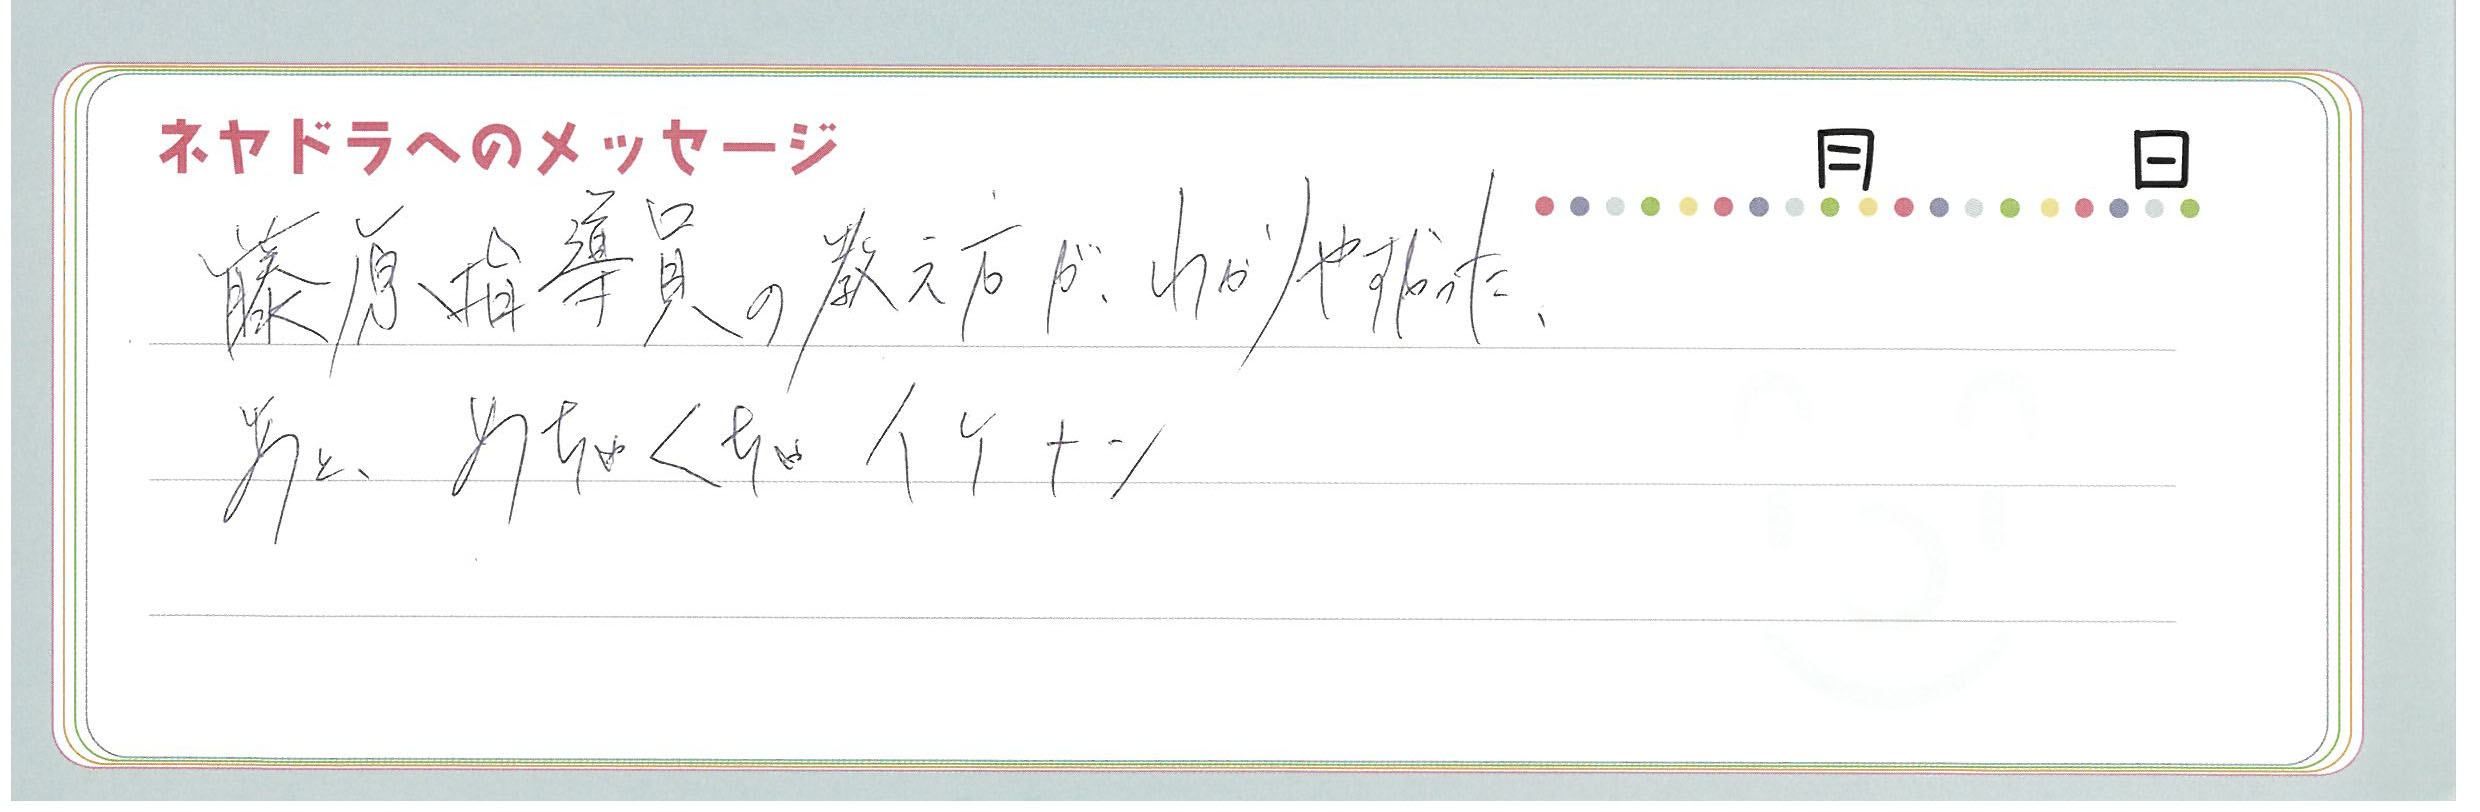 ネヤドラへのメッセージ
月 日
藤原指導員の教え方が、わかりやすかった、
あと、めちゃくちゃイケナン